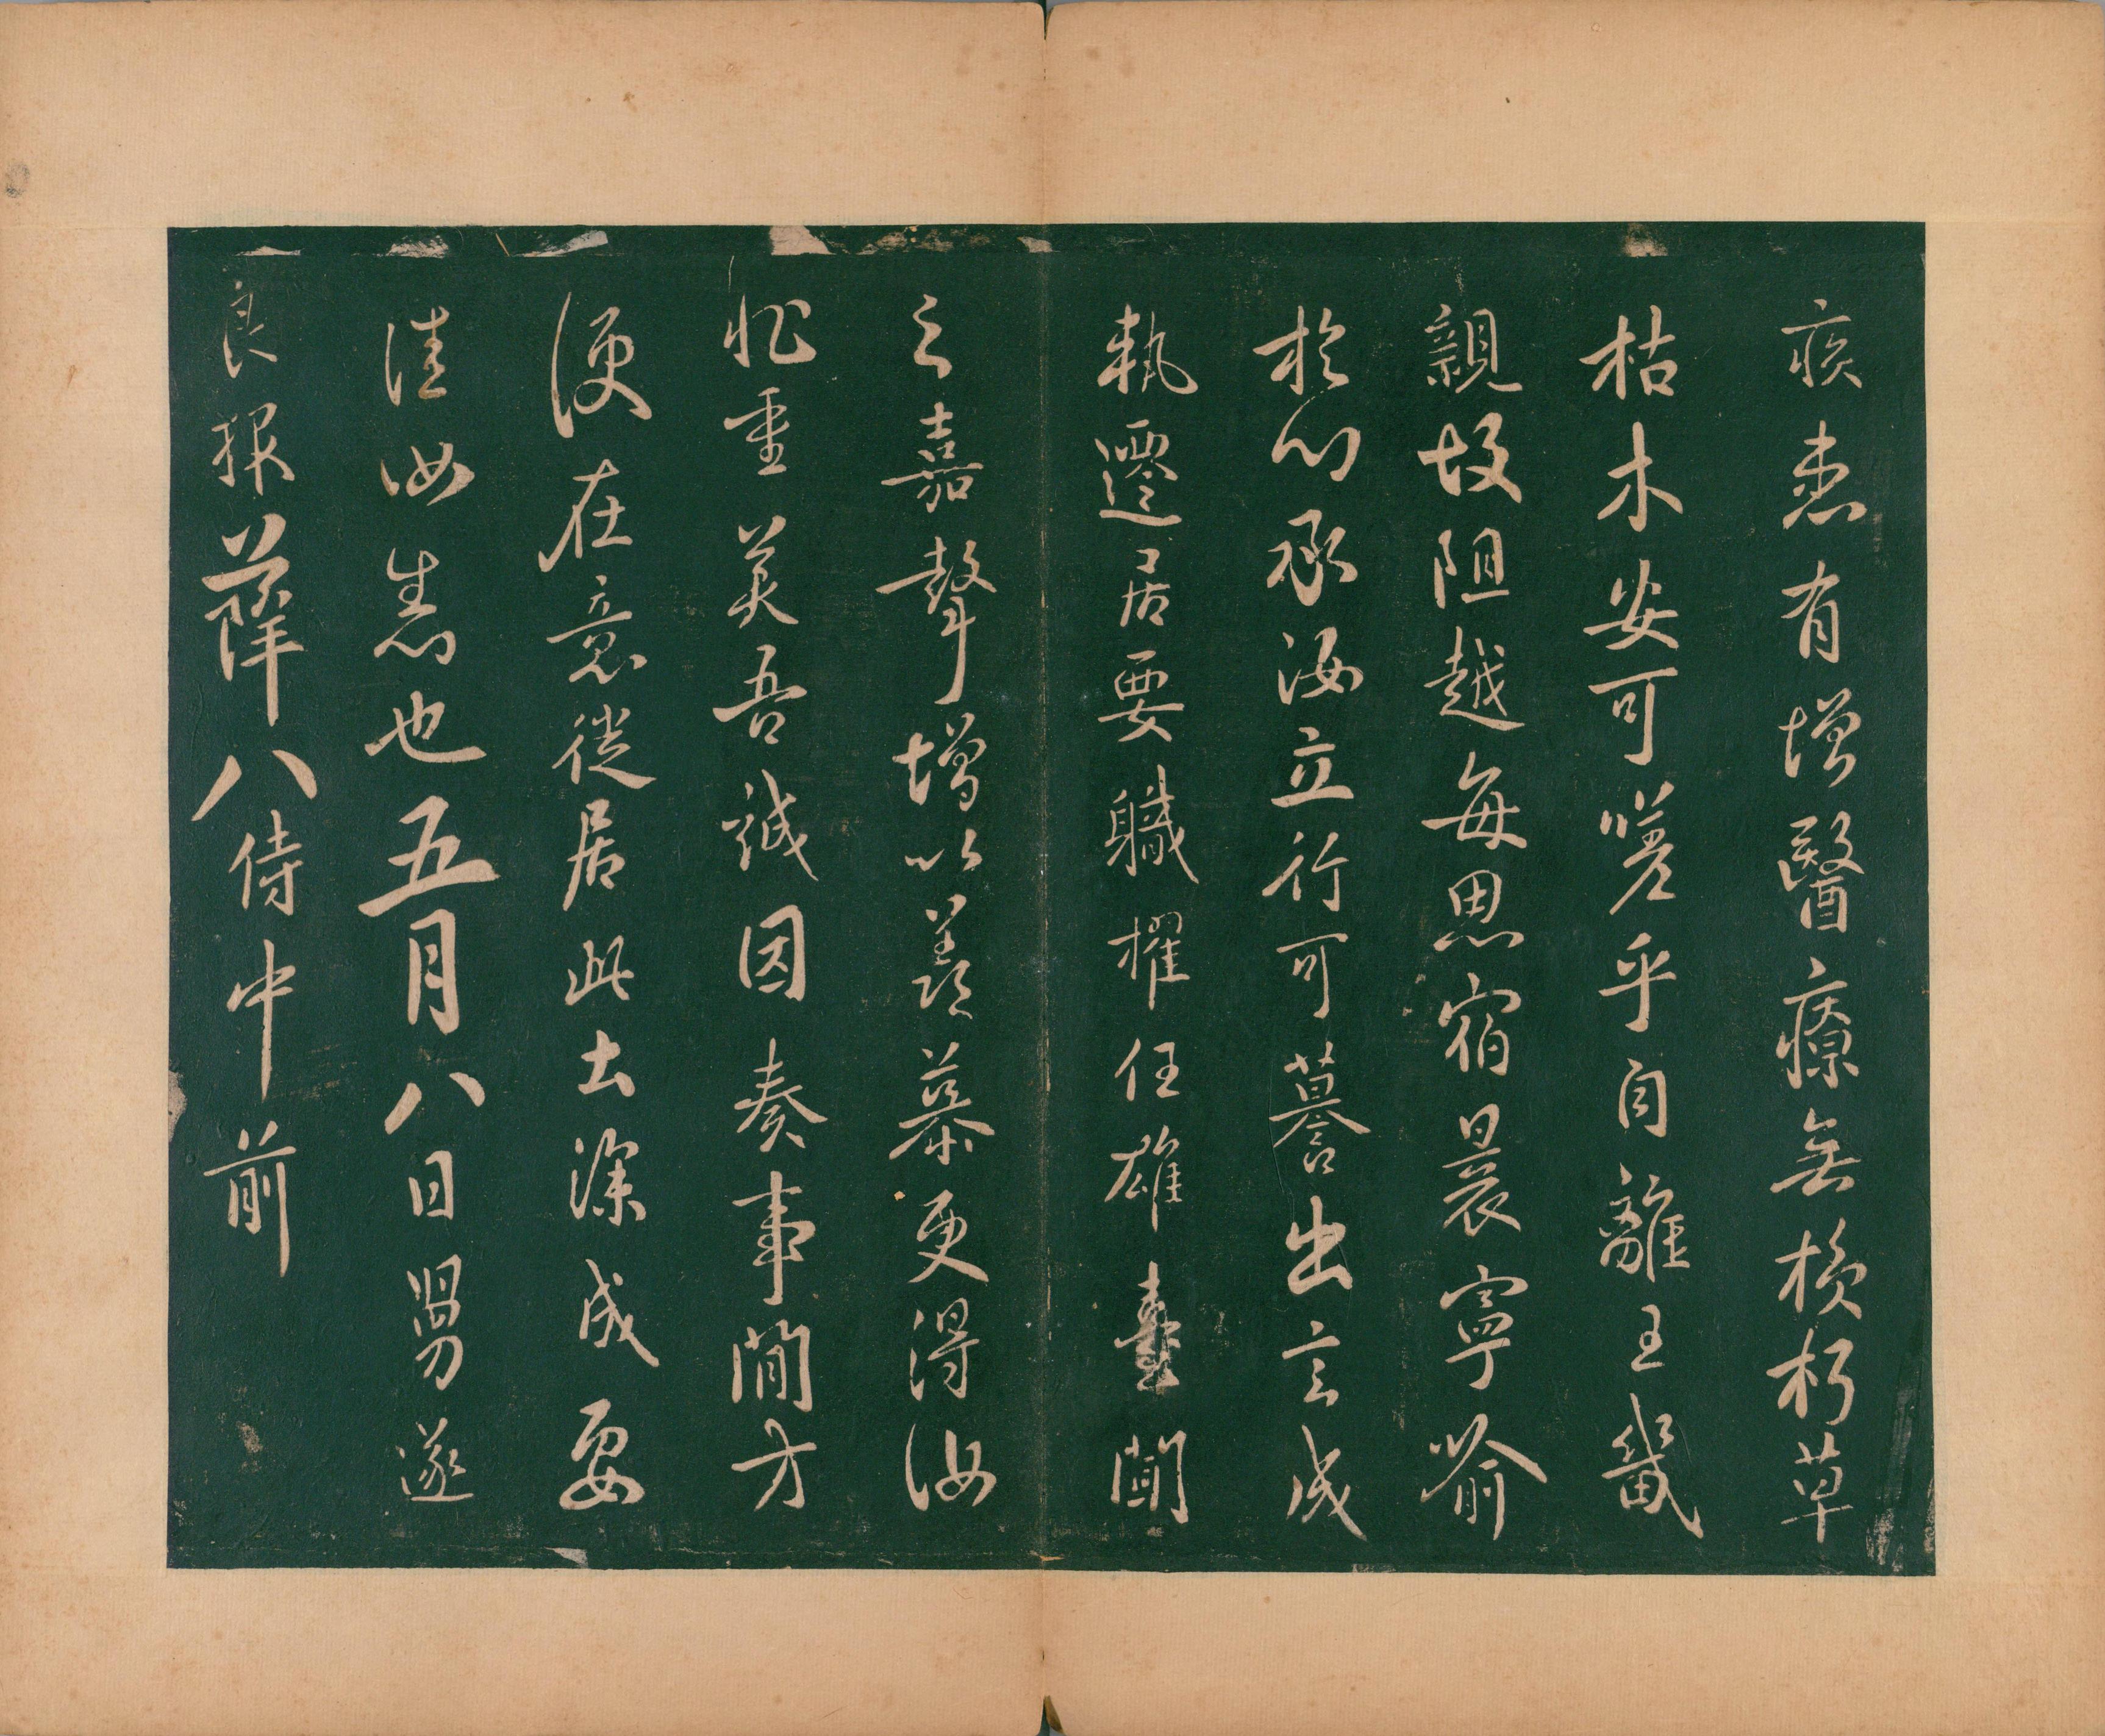 疾患有增醫療無損朽草
枯木安可嗟乎自離王畿
親故阻越每思宿晨寧喻
於心承汝立行可譽出言成
執遷居要職擢任雄臺聞
之嘉聲增以羨慕更得汝
重美吾誠因奏事簡方
便在意從居此土深成要
佳汝悉也五月八日舅遂
良報薛八侍中前